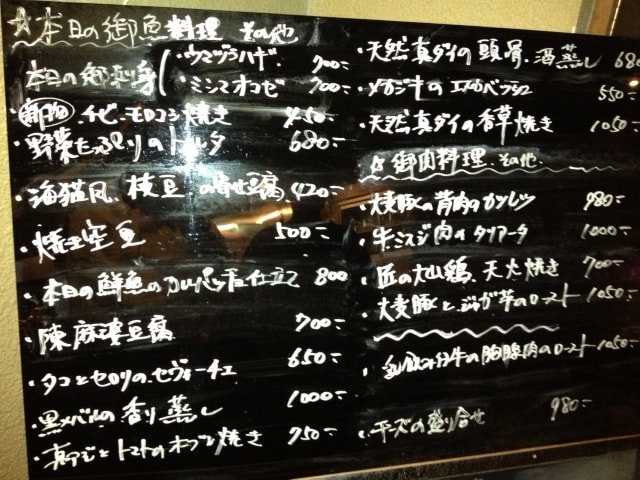 ☆本日の御魚料理 その他
本日の御刺身 ・ウマヅラハギ 700-
・ミシマオコゼ 700-
・新物 チビ・モロコシ焼き 450-
・野菜たっぷりのトルタ 680-
・海猫風、枝豆の寄せ豆腐 420-
・焼 空豆 500-
・本日の鮮魚のカルパッチョ仕立て 800
・陳麻婆豆腐 700-
・タコとセロリのセヴィーチェ 650-
・黒メバルの香り蒸し 1000-
・真アジとトマトのオーブン焼き 750-
・天然真ダイの頭骨、酒蒸し 680
・メカジキのエスカベッシュ 550-
・天然真ダイの香草焼き 1050-
☆御肉料理 その他
・大麦豚の背肉のカツレツ 980-
・牛ミスジ肉のタリアータ 1000-
・匠の大山鶏、天火焼き 700-
・大麦豚とジャガ芋のロースト 1050-
・乳飲み仔牛の胸腺肉のロースト 1050-
・チーズの盛り合せ 980-